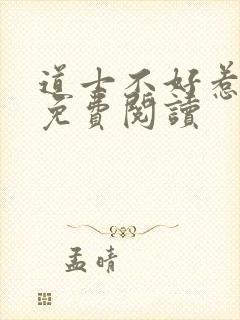 道士不好惹
免費閱讀
孟晴